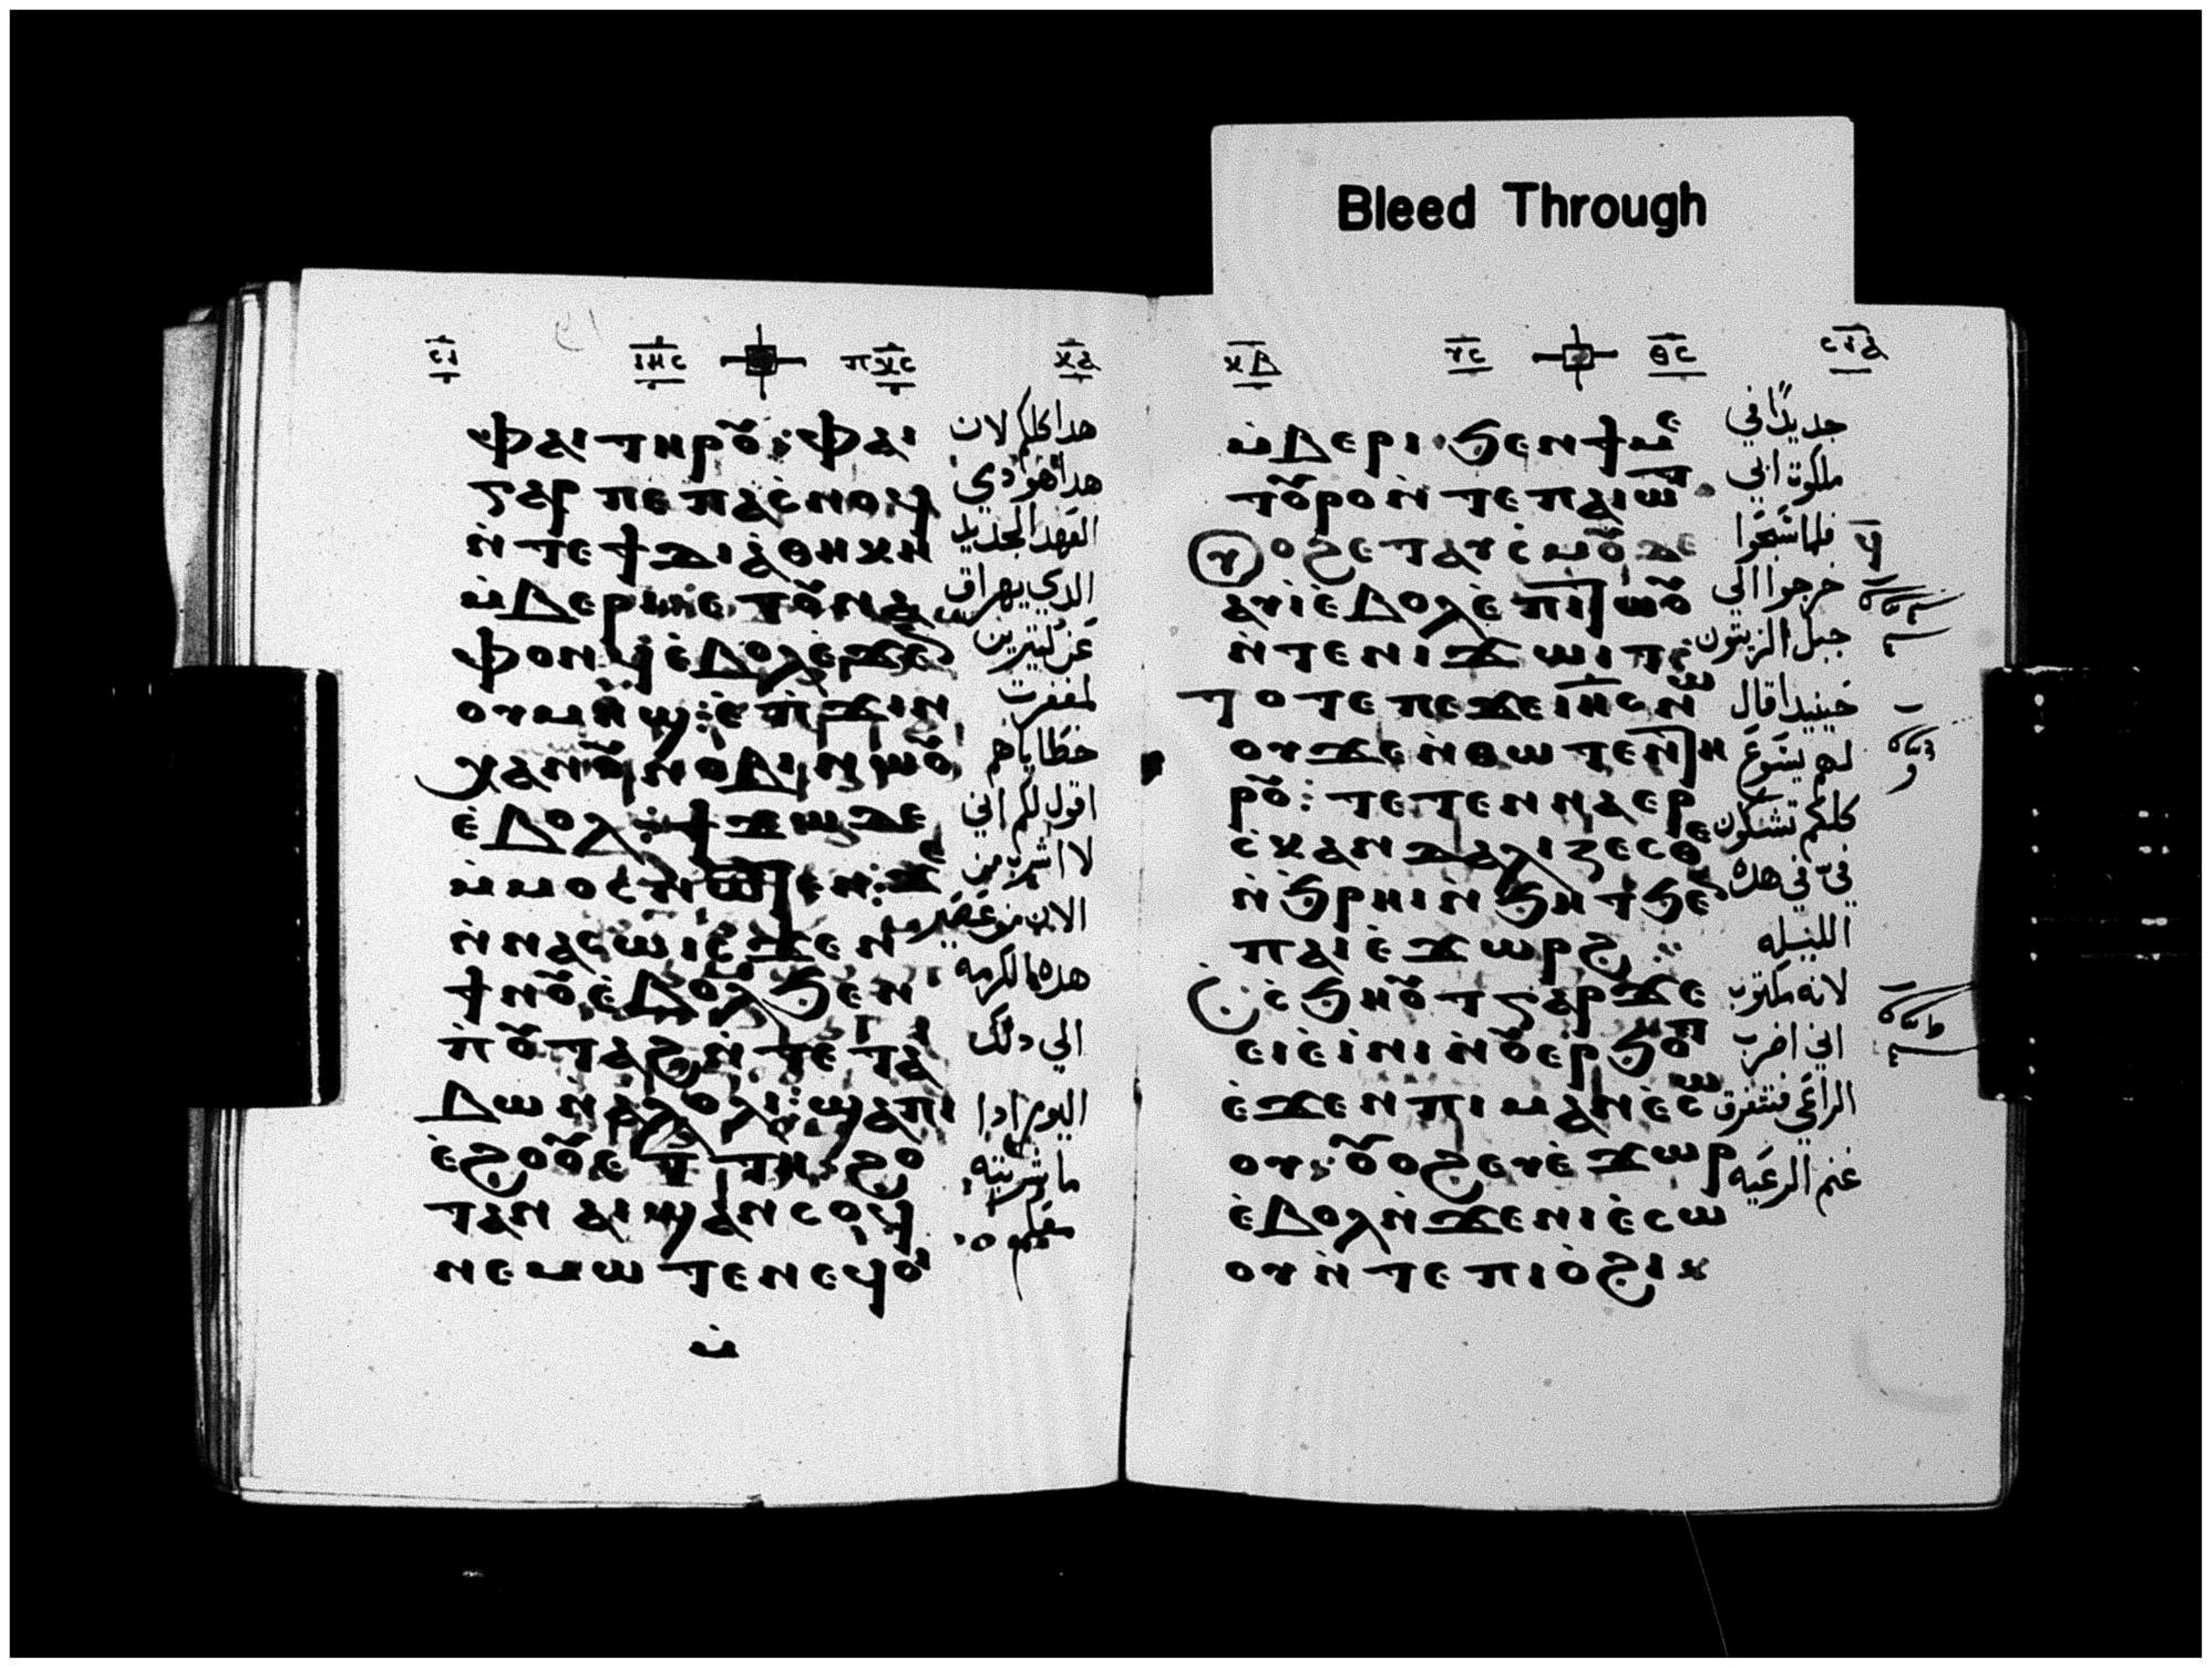 Bleed Through
ⲥⲓ ⲓⲏⲥ ⲡⲭⲥ ⲕⲁ
ⲫⲁⲓ ⲧⲏⲣⲟⲩ: ⲫⲁⲓ
ⲅⲁⲣ ⲡⲉ ⲡⲁⲥⲛⲟϥ
ⲛ̇ⲧⲉϯⲇⲓⲁ̇ⲑⲏⲕⲏ
ⲙ̇ⲃⲉⲣⲓ ⲉⲧⲟⲩⲛⲁ
ⲫⲟⲛϥ ⲉ̇ⲃⲟⲗ ⲉ̇ϫⲉ
ⲟⲩⲙⲏϣ: ⲉ̇ⲡ̇ϫⲓⲛ
ⲭⲁⲛⲟⲩⲛⲟⲃⲓ ⲛⲱⲟⲩ
ⲉ̇ⲃⲟⲗ: ϯϫⲱ ⲇⲉ
ⲙ̇ⲙⲟⲥ ⲛⲱⲧⲉⲛ: ϫⲉ
ⲛ̇ⲛⲁⲥⲱ ⲓⲥϫⲉⲛ
ϯⲛⲟⲩ ⲉ̇ⲃⲟⲗ ϧⲉⲛ
ⲡ̇ⲟⲩⲧⲁϩ ⲛ̇ⲧⲉ ⲧⲁ
ⲃⲱ ⲛ̇ⲁ̇ⲗⲟⲗⲓ: ϣⲁⲡⲓ
ⲉ̇ϩⲟⲟⲩ ⲉⲧⲧⲏ: ϩⲟ
ⲧⲁⲛ ⲁⲓϣⲁⲛⲥⲟϥ
ⲛⲉⲙⲱⲧⲉⲛ ⲉϥⲟⲓ
ⲙ̇
هدا كلكم لان
هدا هو دمي
العهد الجديد
الدي يهراق
عن كتيرين
لمغفرت
خطاياهم
اقول لكم اني
لا اشرب من
الان من عصير
هده الكرمه
الي دلك
اليوم ادا
ما شربته
معكم
ⲕⲃ ⲩⲥ ⲑⲥ ⲥⲓⲁ
ⲙ̇ⲃⲉⲣⲓ ϧⲉⲛ ϯⲙⲉ
ⲧⲟⲩⲣⲟ ⲛ̇ⲧⲉ ⲡⲁⲓⲱⲧ
ⲟϩ ⲉⲧⲁⲩⲥ̇ⲙⲟⲩ ⲇⲉ
ⲁⲩⲓ̇ ⲉ̇ⲃⲟⲗ ⲉ̇ⲡⲓⲧⲱⲟⲩ
ⲛ̇ⲧⲉ ⲛⲓϫⲱⲓⲧ:
ⲧⲟⲧⲉ ⲡⲉϫⲉ ⲓⲏⲥ ⲛⲱ
ⲟⲩ ϫⲉ ⲛ̇ⲑⲱⲧⲉⲛ ⲧⲏ
ⲣⲟⲩ: ⲧⲉⲧⲉⲛⲛⲁⲉⲣ
ⲥ̇ⲕⲁⲛⲇⲁⲗⲓⲍⲉⲥⲑⲉ
ⲛ̇ϧⲣⲏⲓ ⲛ̇ϧⲏⲧ ϧⲉ
ⲡⲁⲓⲉ̇ϫⲱⲣϩ:
ⲥ̇ϧⲏⲟⲩⲧ ⲅⲁⲣ ϫⲉ
ⲉⲓⲉ̇ⲓⲛⲓ ⲛ̇ⲟⲩⲉⲣϧⲟⲧ
ⲉ̇ϫⲉⲛ ⲡⲓⲙⲁⲛⲉ̇ⲥⲱ
ⲟⲩ: ⲟⲩⲟϩ ⲉⲩⲉ̇ϫⲱⲣ
ⲉ̇ⲃⲟⲗ ⲛ̇ϫⲉ ⲛⲓⲉ̇ⲥⲱ
ⲟⲩ ⲛ̇ⲧⲉ ⲡⲓⲟ̇ϩⲓ
جديدًا في
ملكوة ابي
فلما سبحوا
خرجوا الي
جبل الزيتون
حينيدا قال
لهم يسوع
كلكم تشكون
فيّ في هده
الليله
لانه مكتوب
اني اضرب
الراعي فتتفرق
غنم الرعيه